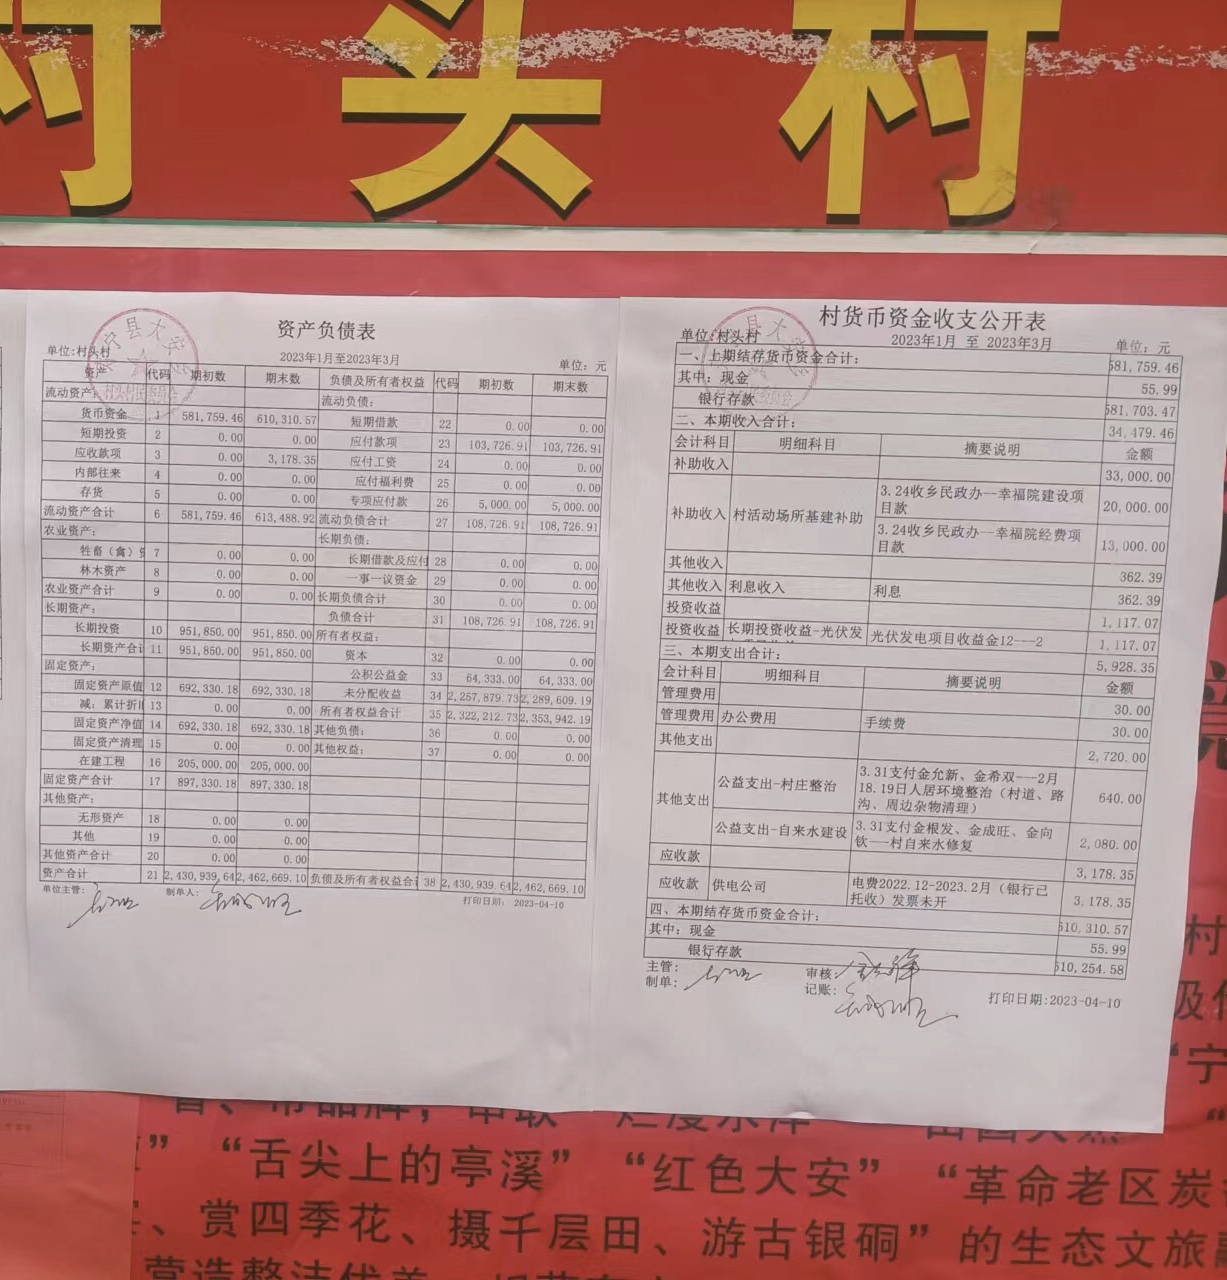 村 头 村
资产负债表
单位:村头村
2023年1月至2023年3月
单位：元
资产 代码 期初数 期末数 负债及所有者权益 代码 期初数 期末数
流动资产: 流动负债:
货币资金 1 581,759.46 610,310.57 短期借款 22 0.00 0.00
短期投资 2 0.00 0.00 应付款项 23 103,726.91 103,726.91
应收款项 3 0.00 3,178.35 应付工资 24 0.00 0.00
内部往来 4 0.00 0.00 应付福利费 25 0.00 0.00
存货 5 0.00 0.00 专项应付款 26 5,000.00 5,000.00
流动资产合计 6 581,759.46 613,488.92 流动负债合计 27 108,726.91 108,726.91
农业资产: 长期负债:
牲畜（禽）资 7 0.00 0.00 长期借款及应付 28 0.00 0.00
林木资产 8 0.00 0.00 一事一议资金 29 0.00 0.00
农业资产合计 9 0.00 0.00 长期负债合计 30 0.00 0.00
长期资产: 负债合计 31 108,726.91 108,726.91
长期投资 10 951,850.00 951,850.00 所有者权益:
长期资产合计 11 951,850.00 951,850.00 资本 32 0.00 0.00
固定资产: 公积公益金 33 64,333.00 64,333.00
固定资产原值 12 692,330.18 692,330.18 未分配收益 34 2,257,879.73 2,289,609.19
减: 累计折旧 13 0.00 0.00 所有者权益合计 35 2,322,212.73 2,353,942.19
固定资产净值 14 692,330.18 692,330.18 其他负债: 36 0.00 0.00
固定资产清理 15 0.00 0.00 其他权益: 37 0.00 0.00
在建工程 16 205,000.00 205,000.00
固定资产合计 17 897,330.18 897,330.18
其他资产:
无形资产 18 0.00 0.00
其他 19 0.00 0.00
其他资产合计 20 0.00 0.00
资产合计 21 2,430,939.64 2,462,669.10 负债及所有者权益合计 38 2,430,939.64 2,462,669.10
单位主管: 制单人: 打印日期: 2023-04-10
村货币资金收支公开表
单位:村头村
2023年1月 至 2023年3月
单位: 元
一、上期结存货币资金合计: 581,759.46
其中: 现金 55.99
银行存款 581,703.47
二、本期收入合计: 34,479.46
会计科目 明细科目 摘要说明 金额
补助收入 33,000.00
补助收入 村活动场所基建补助 3.24收乡民政办--幸福院建设项
目款 20,000.00
3.24收乡民政办--幸福院经费项
目款 13,000.00
其他收入 362.39
其他收入 利息收入 利息 362.39
投资收益 1,117.07
投资收益 长期投资收益-光伏发 光伏发电项目收益金12---2 1,117.07
三、本期支出合计: 5,928.35
会计科目 明细科目 摘要说明 金额
管理费用 30.00
管理费用 办公费用 手续费 30.00
其他支出 2,720.00
其他支出 公益支出-村庄整治 3.31支付金允新、金希双---2月
18.19日人居环境整治（村道、路
沟、周边杂物清理） 640.00
公益支出-自来水建设 3.31支付金根发、金成旺、金向
钦---村自来水修复 2,080.00
应收款 3,178.35
应收款 供电公司 电费2022.12-2023.2月（银行已
托收）发票未开 3,178.35
四、本期结存货币资金合计: 610,310.57
其中: 现金 55.99
银行存款 610,254.58
主管: 审核:
制单: 记账:
打印日期:2023-04-10
“舌尖上的亭溪” “红色大安” “革命老区炭
、赏四季花、摄千层田、游古银硐”的生态文旅